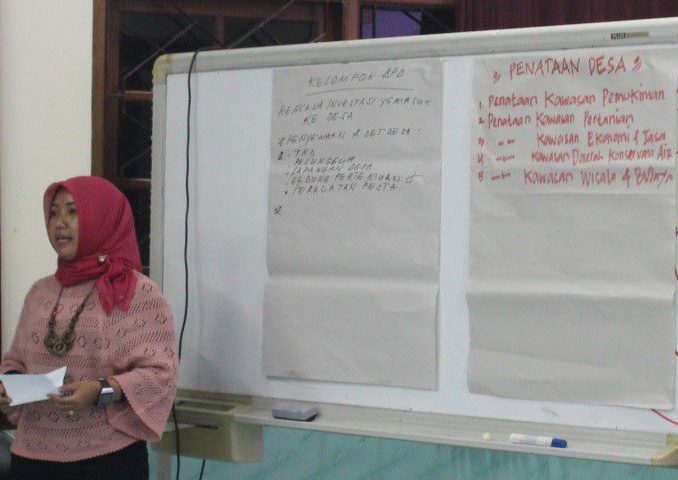 KELOMPOK BPD
RENCANA INVESTASI YG MASUK
KE DESA
PENYEWAAN ASET DESA.
TKD
PELUNGGUH
LAPANGAN DESA
GEDUNG PERTEMUAN
PERALATAN PESTA
PLUS
PENATAAN DESA
1. Penataan Kawasan Pemukiman.
2. Penataan Kawasan Pertanian
3. -"- Kawasan Ekonomi & Jasa
4 -"- Kawasan Daerah Konservasi Air
5 -"- Kawasan Wisata & Budaya